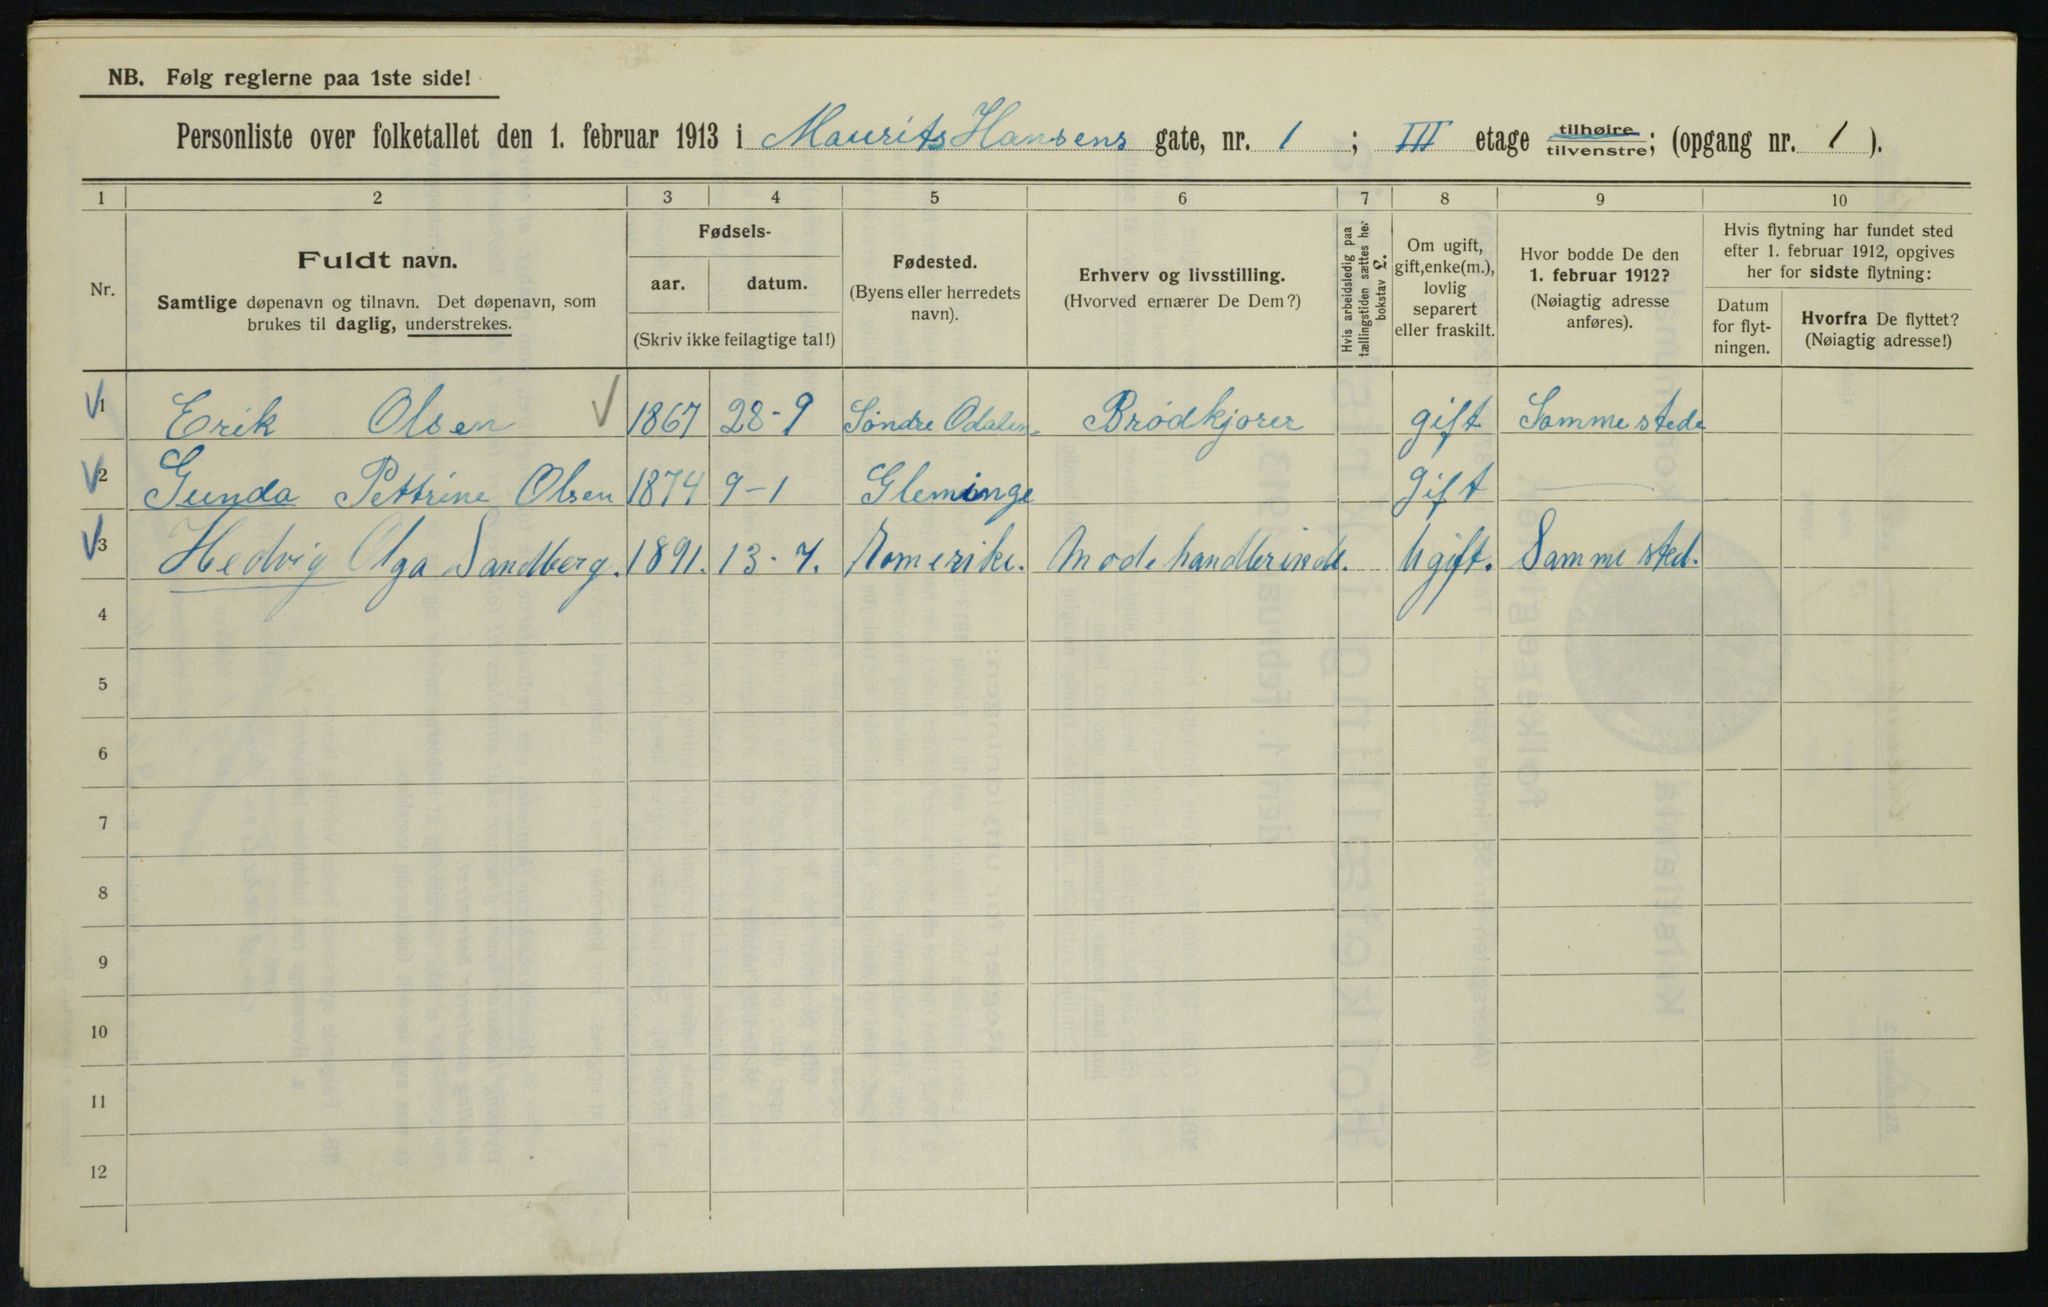 NB. Følg reglerne paa 1ste side!
Personliste over folketallet den 1. februar 1913 i Maurits Hansens gate, nr. 1 ; III etage tilhøire tilvenstre; (opgang nr. 1 ).
1 2 3 4 5 6 7 8 9 10
Nr.
Fuldt navn.
Samtlige døpenavn og tilnavn. Det døpenavn, som
brukes til daglig, understrekes.
Fødsels-
aar. datum.
(Skriv ikke feilagtige tal!)
Fødested.
(Byens eller herredets
navn).
Erhverv og livsstilling.
(Hvorved ernærer De Dem?)
Hvis arbeidsledig paa
tællingstiden sættes her
bokstav £.
Om ugift,
gift, enke(m.),
lovlig
separert
eller fraskilt.
Hvor bodde De den
1. februar 1912?
(Nøiagtig adresse
anføres).
Hvis flytning har fundet sted
efter 1. februar 1912, opgives
her for sidste flytning:
Datum
for flyt-
ningen.
Hvorfra De flyttet?
(Nøiagtig adresse!)
1 Erik Olsen 1867 28-9 Søndre Odalen Brødkjører gift Sammestede
2 Gunda Pettrine Olsen 1874 9-1 Gleminge gift
3 Hedvig Olga Sandberg. 1891. 13-7. Romerike. Modehandlerinde. Ugift. Samme sted.
4
5
6
7
8
9
10
11
12